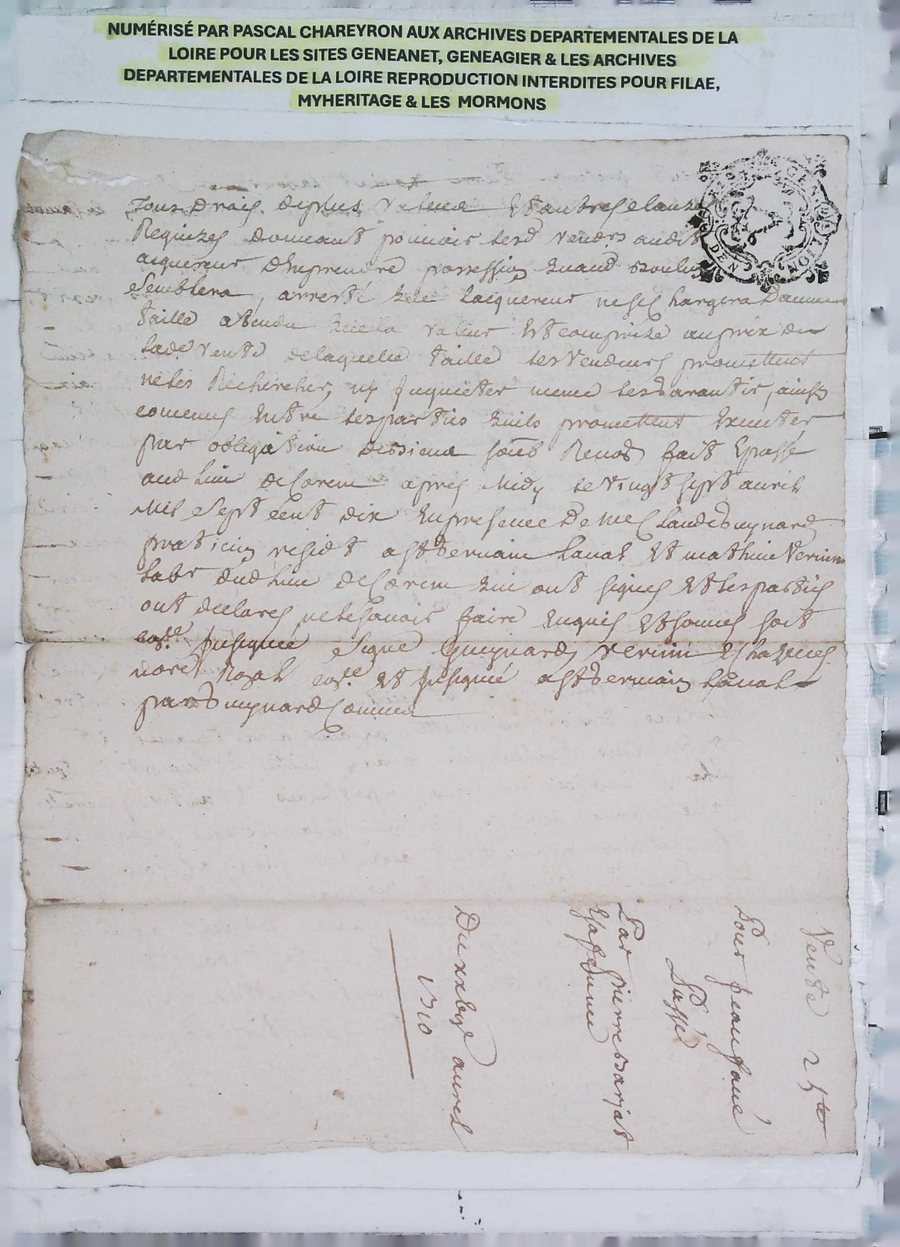 NUMÉRISÉ PAR PASCAL CHAREYRON AUX ARCHIVES DEPARTEMENTALES DE LA
LOIRE POUR LES SITES GENEANET, GENEAGIER & LES ARCHIVES
DEPARTEMENTALES DE LA LOIRE REPRODUCTION INTERDITES POUR FILAE,
MYHERITAGE & LES MORMONS
GEN
LION
DEN
Tous Drais, deplus vallue et autres clauzes
Requizes donnant pouvoir lesd vendrs audit
aquereur d'en prendre possession quand bon luy
semblera, arresté que lacquereur ne se chargera Daucune
taille atendu que la valeur est comprize au prix de
lade vente de laquelle taille les vendeurs promettent
ne les Rechercher, ny Inquieter meme les garantir, ainsy
convenus entre les parties quils promettent executer
par obligation de biens soub Renon fait & passé
aud lieu de apres Midy le vingt sept avril
Mil sept cent dix en presence De me Claude Guynard
praticien residt a St Germain Laval et mathieu Verrieu
labr dud lieu de qui ont signés et les parties
ont declarés ne le scavoir faire enquis et sommés soit
conle Insignué Signé Guynard, Verrieu &
nore Royal conle et Insignué a St Germain Laval
par Guynard Commis
Vente 2 Ste
Pour Jean
Par Pierre
& sa femme
Du 27 avril
1710